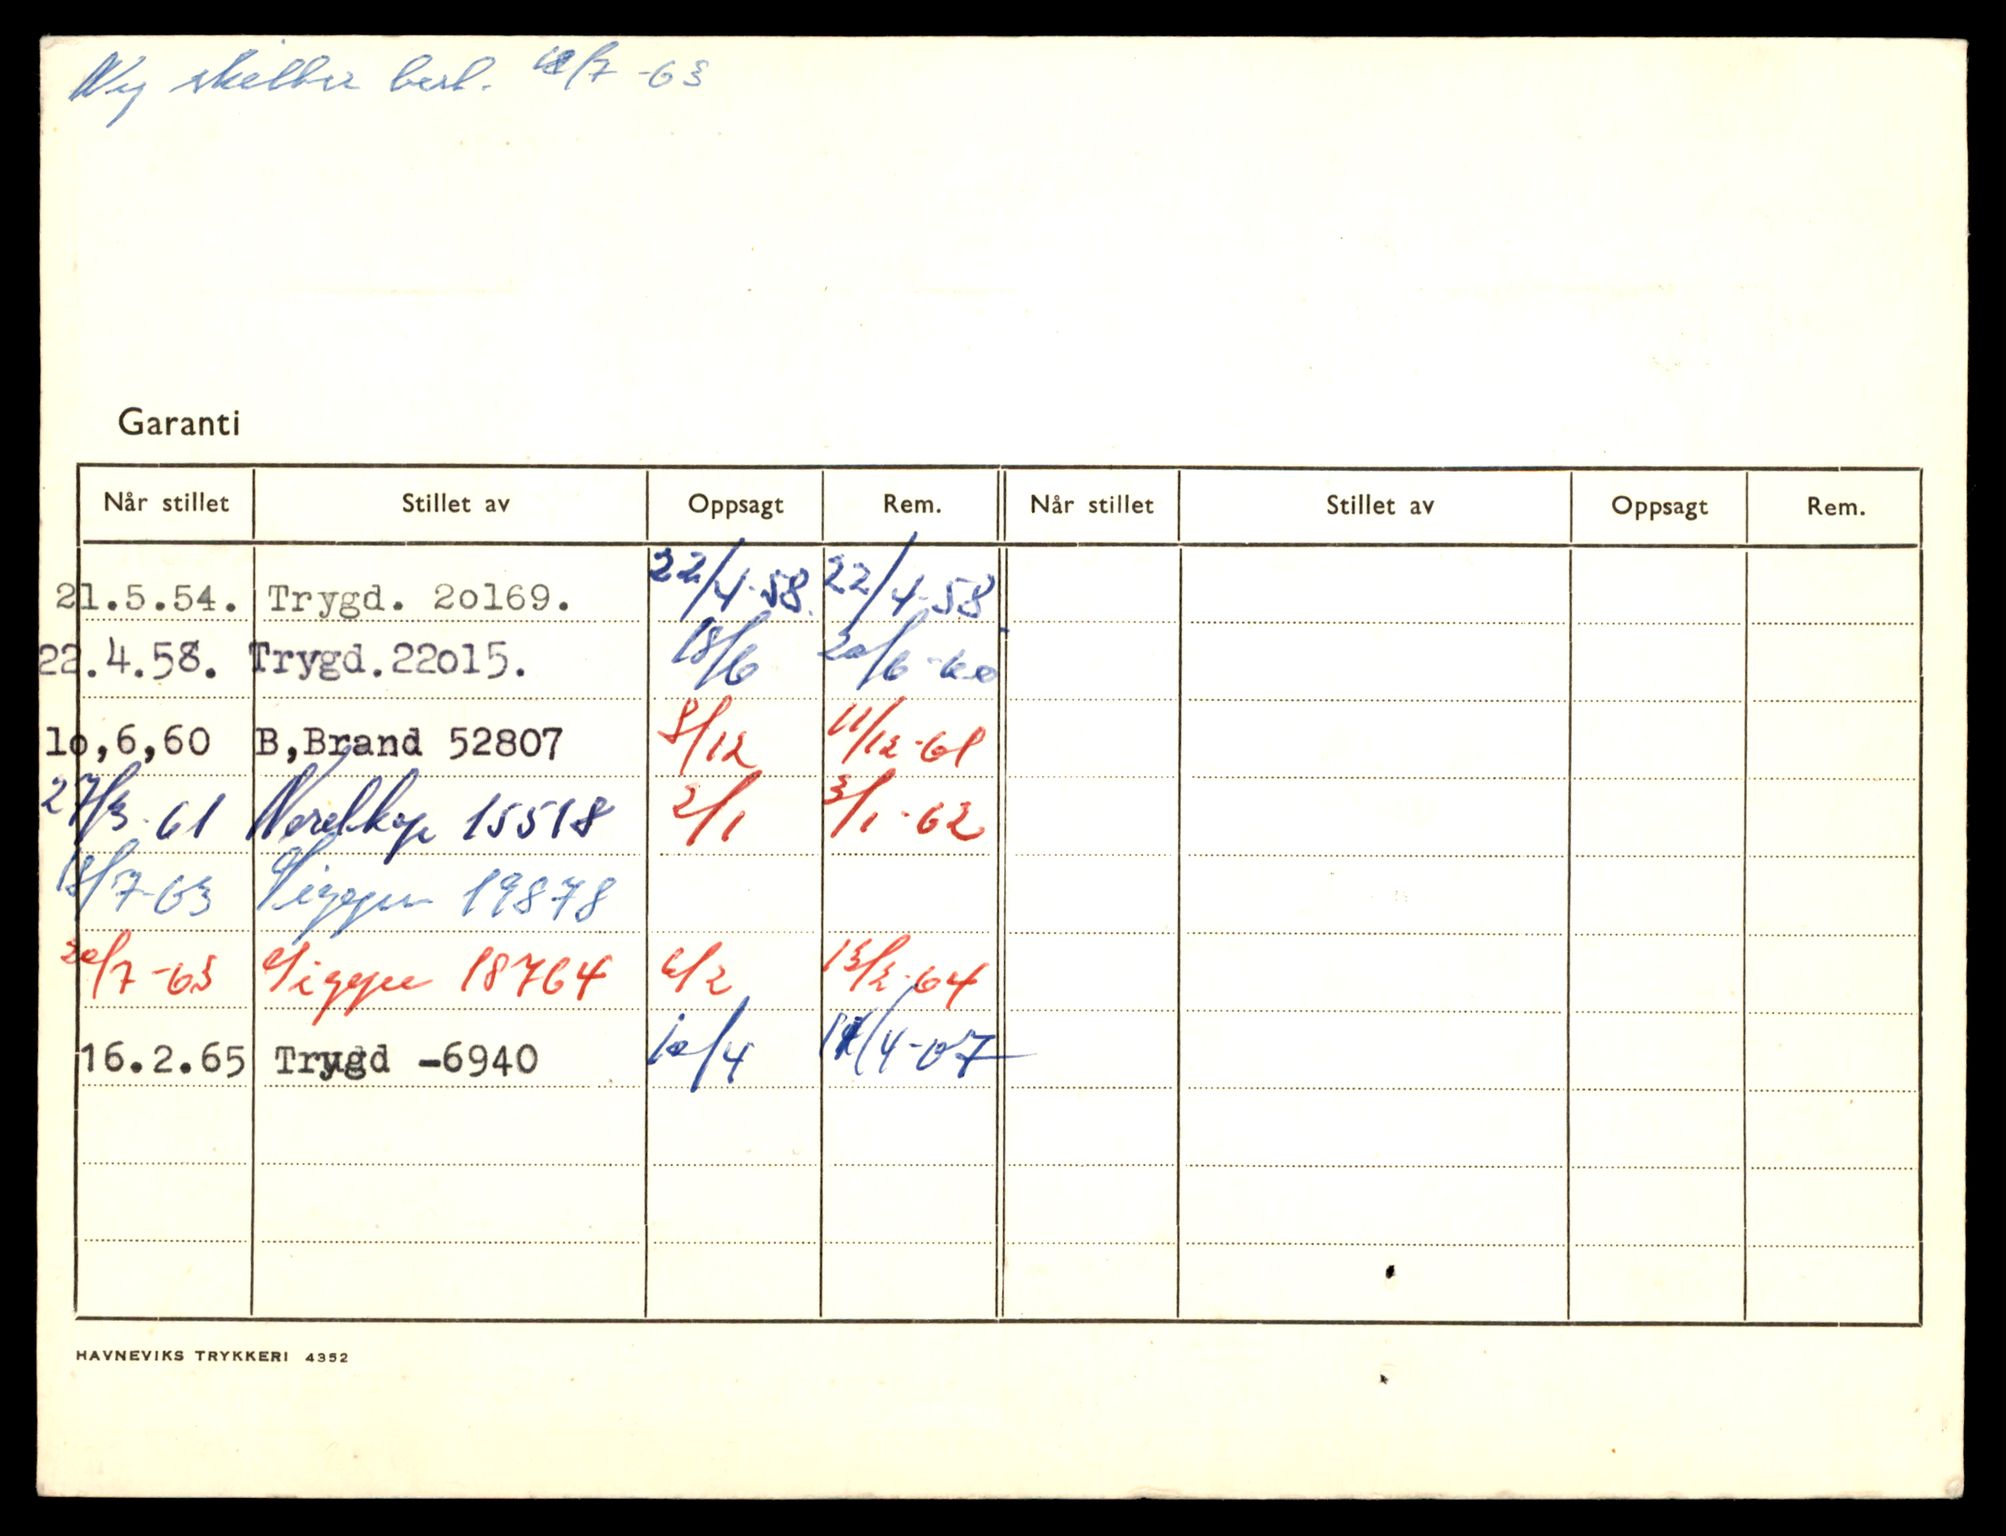 Ny skilter best. 18/7-63
Garanti
Når stillet Stillet av Oppsagt Rem. Når stillet Stillet av Oppsagt Rem.
21.5.54. Trygd. 2o169. 22/4-58. 22/4-58.
22.4.58. Trygd.22o15. 18/6 20/6-60
1o,6,60 B,Brand 52807 8/12 11/12-61
27/3-61 Nordkap 15518 2/1 3/1-62
18/7-63 Viggen 19878
30/7-63 Viggen 18764 6/2 13/2-64
16.2.65 Trygd -6940 10/4 11/4-67
HAVNEVIKS TRYKKERI 4352